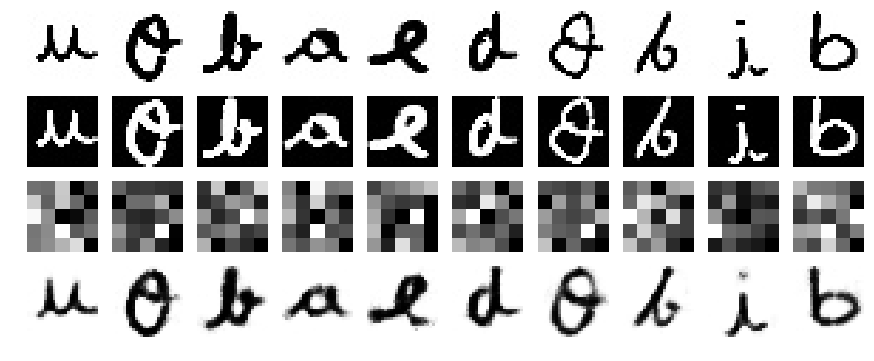 u O b a e d O b j b
u O b a e d O b j b
u O b a e d O b j b